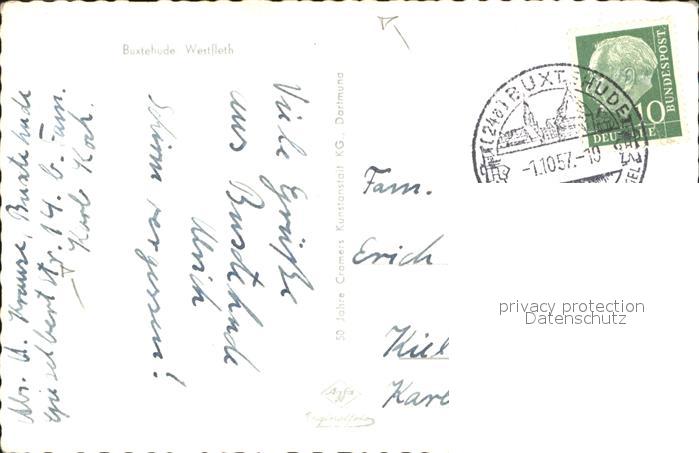 Buxtehude Westfleth
Viele Grüße
aus Buxtehude
Ulrich
50 Jahre Cramers Kunstanstalt KG., Dortmund
Abs. A. Krause, Buxtehude
Giselbertstr. 14. b. Fam.
Karl Koch.
(24a) BUXTEHUDE
-1.10.57.-10
10
DEUTSCHE
BUNDESPOST
Fam.
Erich
Kiel
Karl
Agfa
Originalfoto
privacy protection
Datenschutz